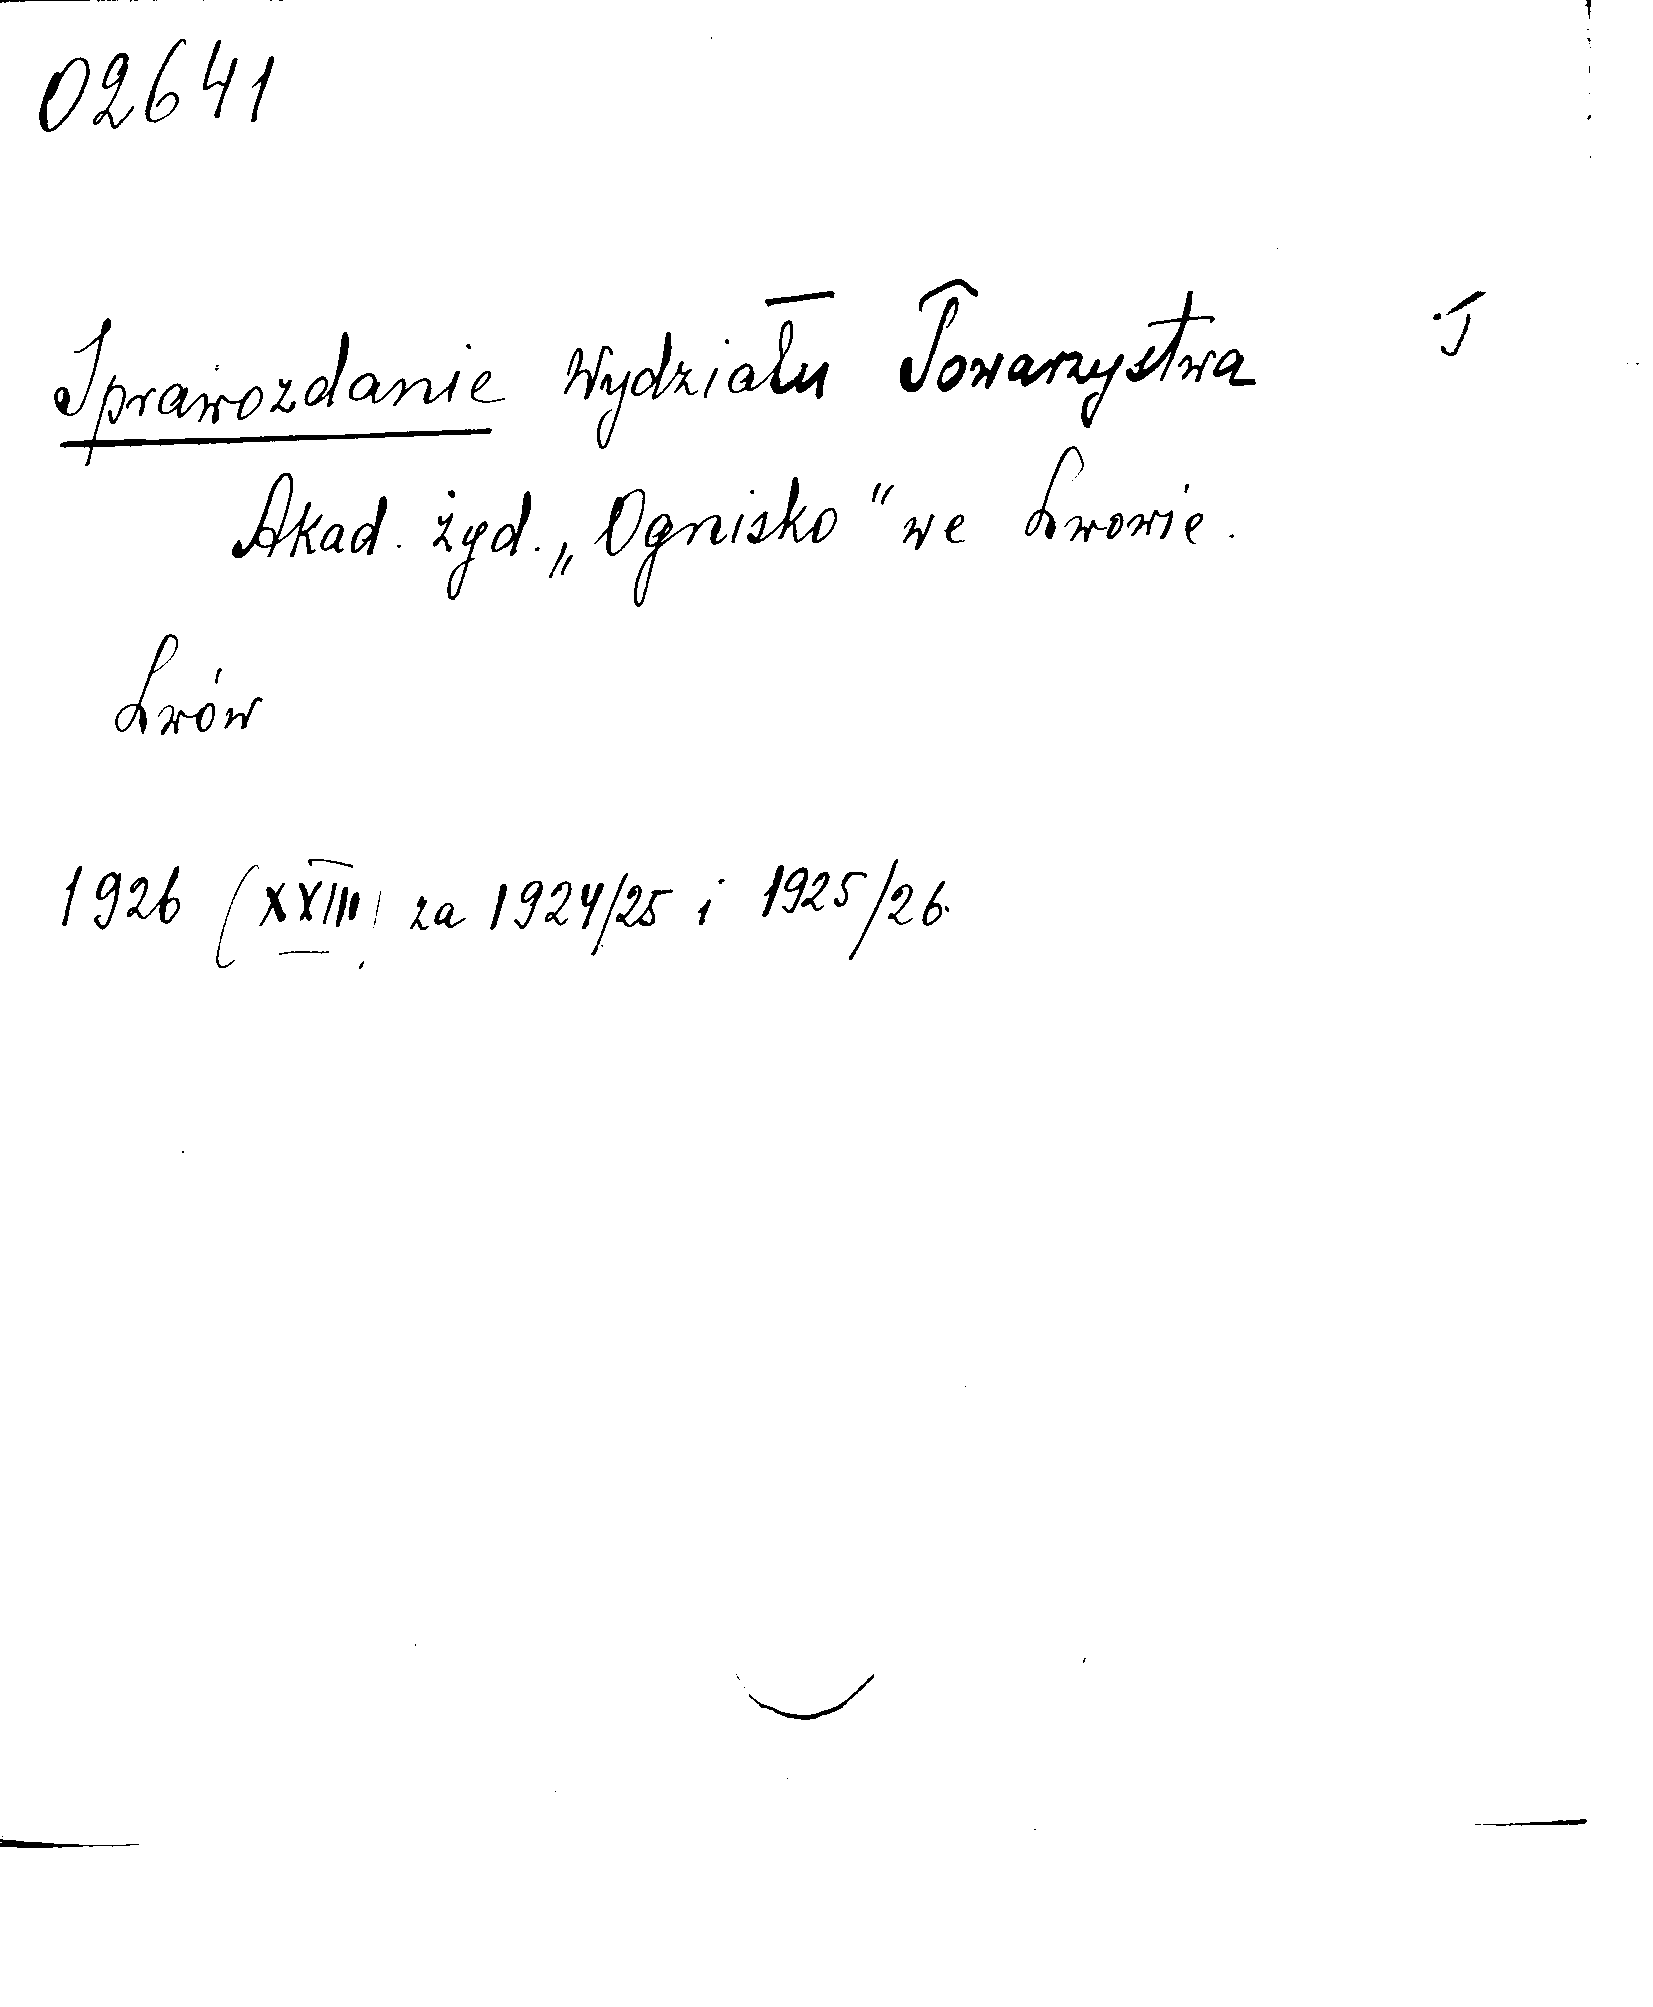 02641
Sprawozdanie Wydziału Towarzystwa J
Akad. żyd. „Ognisko" we Lwowie.
Lwów
1926 (XXIII) za 1924/25 i 1925/26.